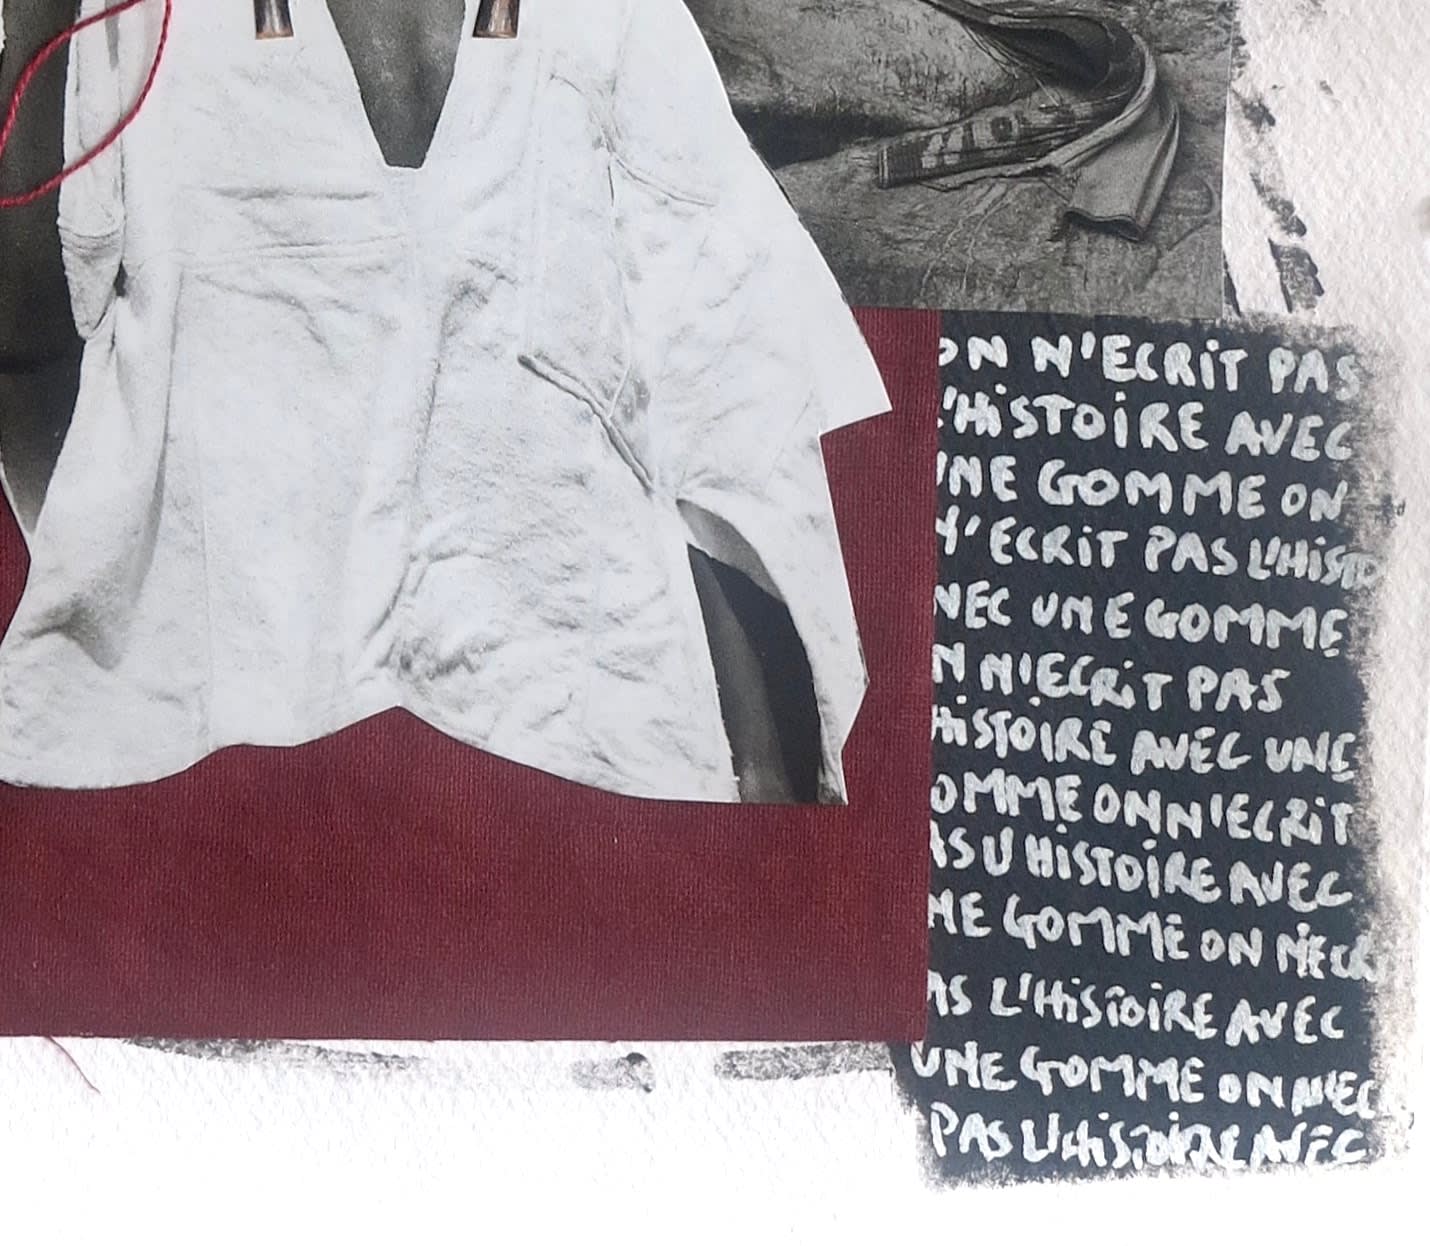 ON N'ECRIT PAS
'HISTOIRE AVEC
UNE GOMME ON
N'ECRIT PAS L'HISTO
VEC UNE GOMME
N N'ECRIT PAS
HISTOIRE AVEC UNE
OMME ON N'ECRIT
AS L'HISTOIRE AVEC
NE GOMME ON N'ECR
AS L'HISTOIRE AVEC
UNE GOMME ON N'EC
PAS L'HISTOIRE AVEC